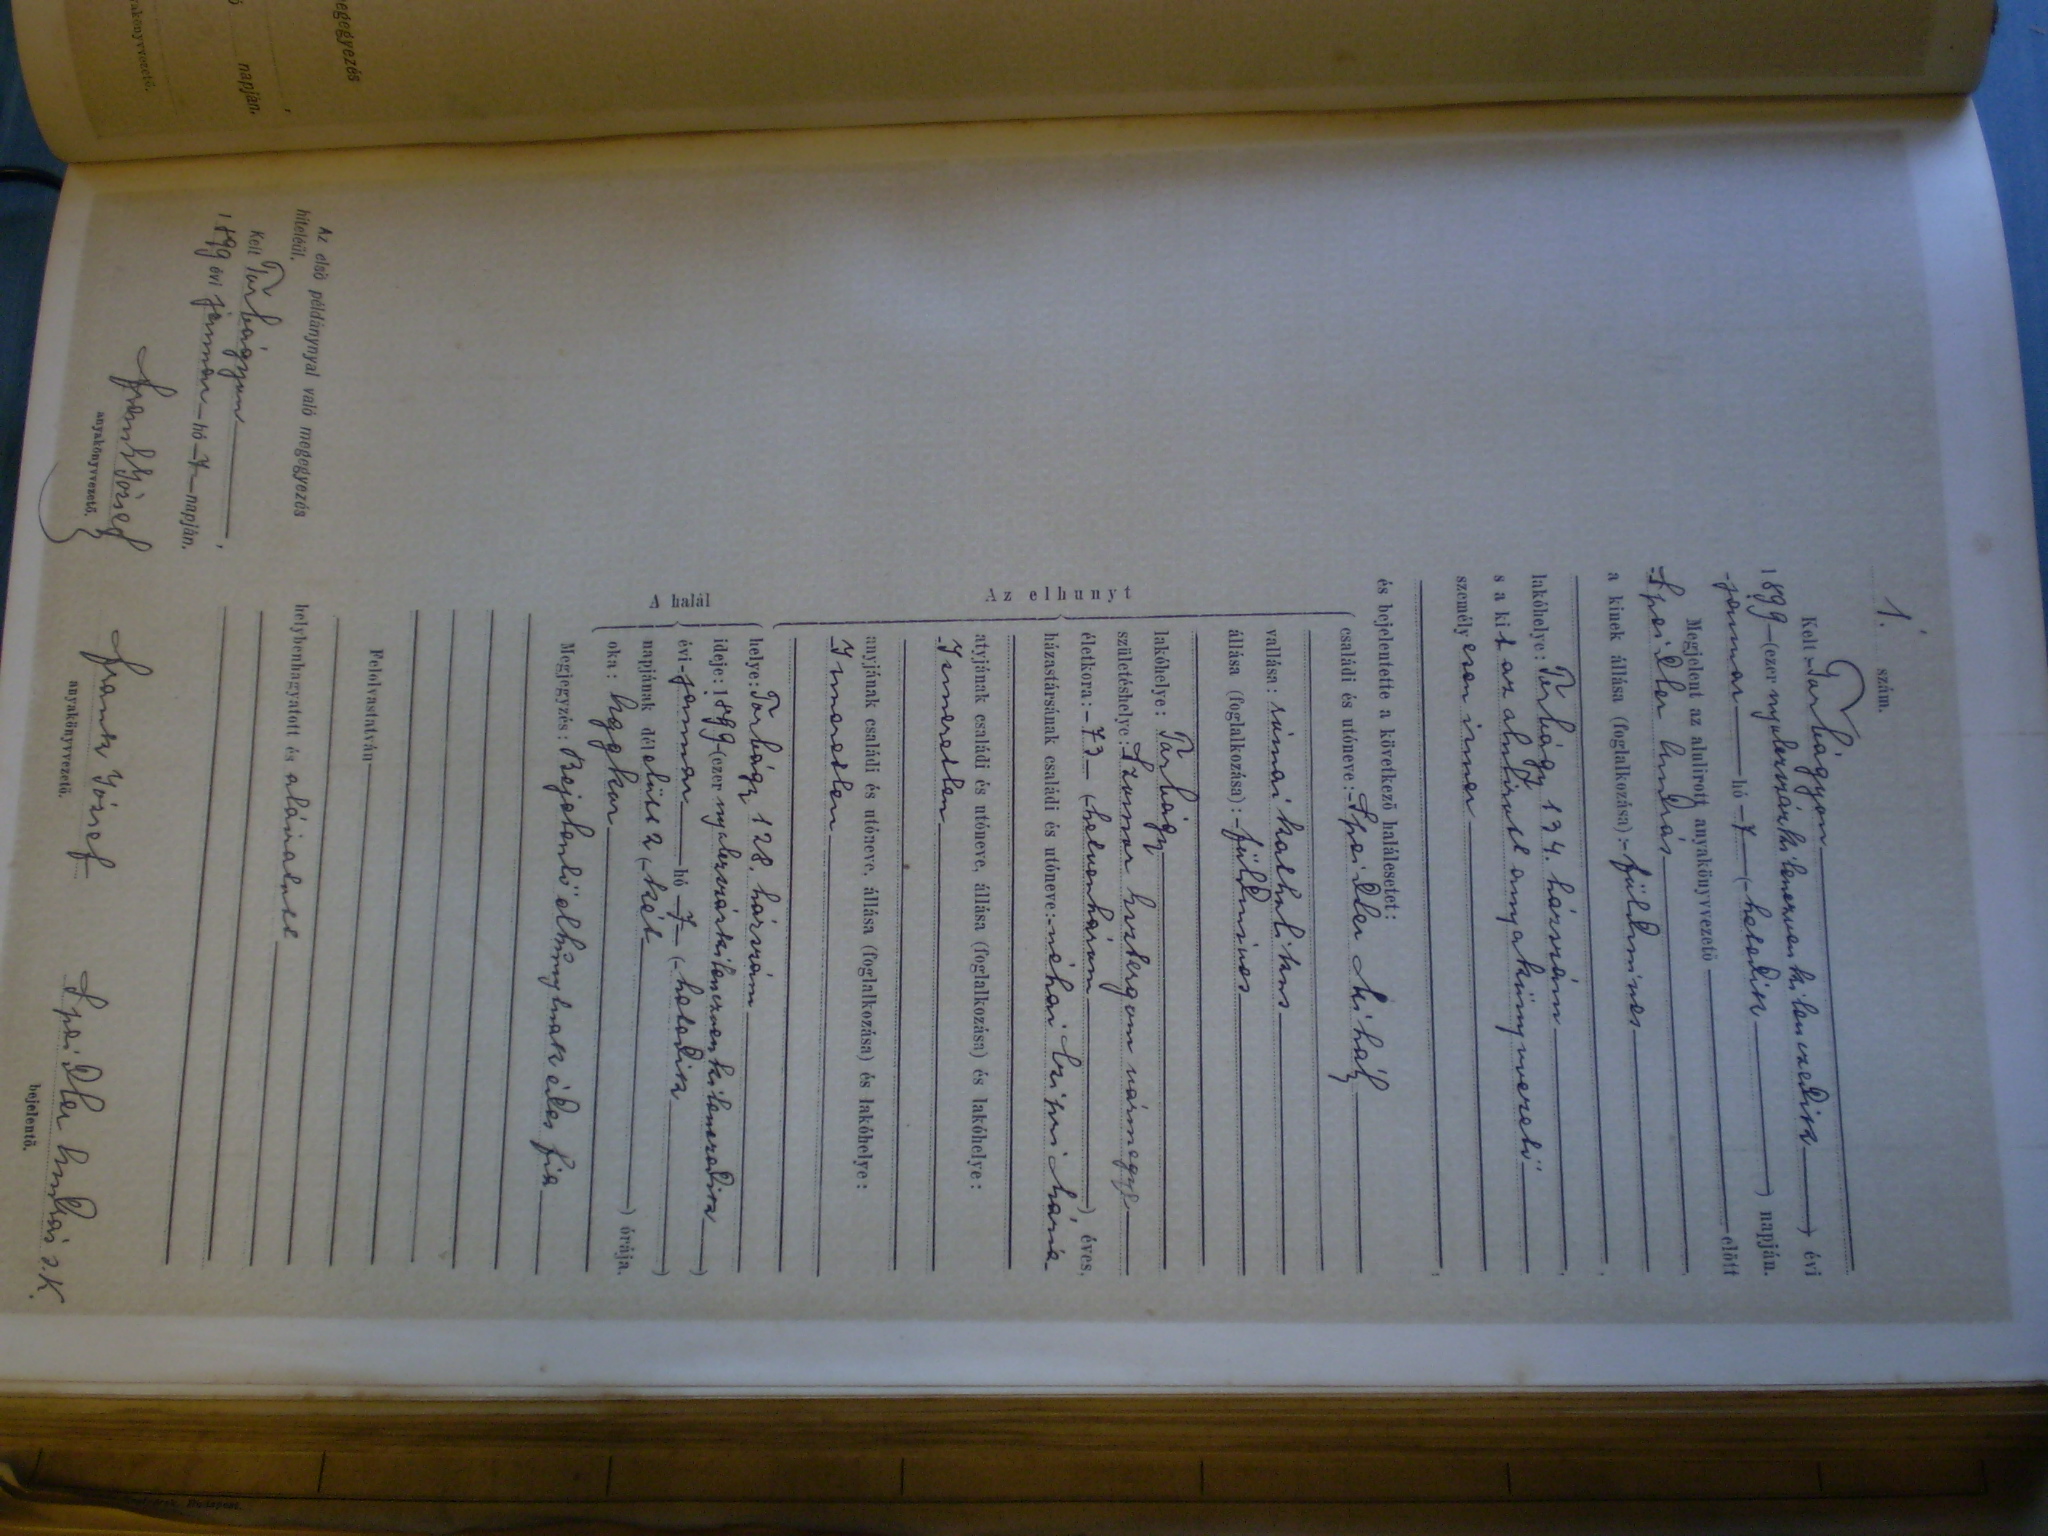 1. szám.
Kelt Torbágyon
1899 (ezer nyolczszázkilenczvenkilenczedik) évi
január hó 7 (hetedik) napján.
Megjelent az alulirott anyakönyvvezető előtt
Speidler András,
a kinek állása (foglalkozása): földmives,
lakóhelye: Torbágy 134. házszám,
s a kit az alulirott anyakönyvvezető
személyesen ismer,
és bejelentette a következő halálesetet:
Az elhunyt
családi és utóneve: Speidler Mihály
vallása: római katholikus
állása (foglalkozása): földmives
lakóhelye: Torbágy
születéshelye: Szomor Esztergom vármegye
életkora: 73 (hetvenhárom) éves,
házastársának családi és utóneve: néhai Mária
atyjának családi és utóneve, állása (foglalkozása) és lakóhelye:
Ismeretlen
anyjának családi és utóneve, állása (foglalkozása) és lakóhelye:
Ismeretlen
A halál
helye: Torbágy 128. házszám
ideje: 1899 (ezer nyolczszázkilenczvenkilenczedik)
évi január hó 7 (hetedik)
napjának délelőtt 2 (két) órája.
oka: Aggkor
Megjegyzés: Bejelentő elhunytnak édes fia
Felolvastatván
helybenhagyatott és aláiratott
Frank József
anyakönyvvezető.
Speidler András s.k.
bejelentő.
Az első példánynyal való megegyezés
hiteléül.
Kelt Torbágyon,
1899 évi január hó 7 napján.
Frank József
anyakönyvvezető.
megegyezés
napján.
anyakönyvvezető.
Budapest.